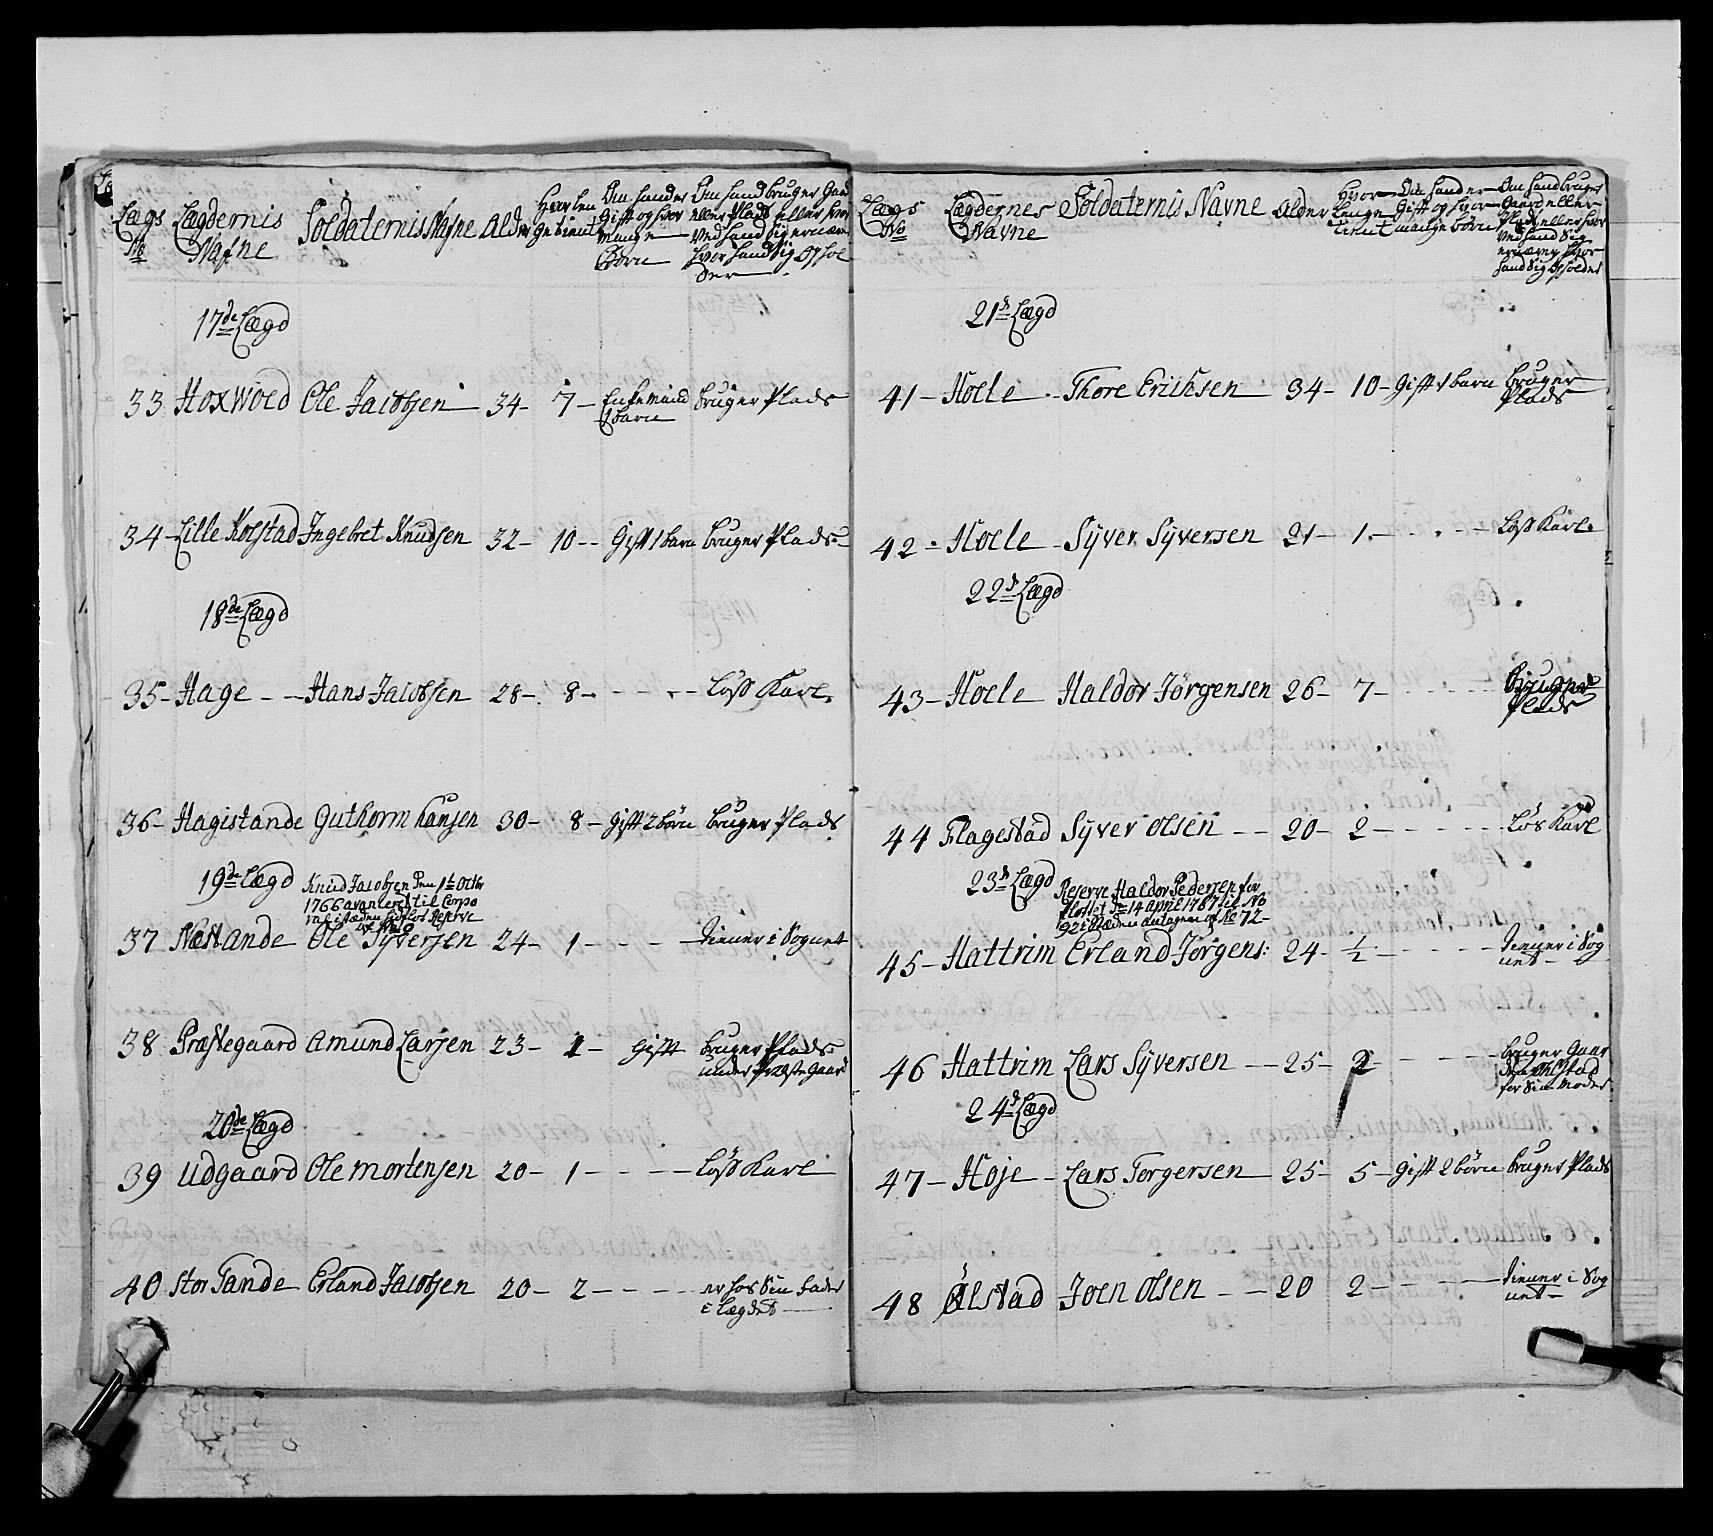 Lægs No Lægdernis Nafne Soldaternis Nafne Alder Hvor len ge tient Om hand er Gift og hvor mange Børn Om hand bruger Gaard eller Plads eller hvor ved hand sig ernærer hvor hand sig ophol der
17de Lægd
33 Hoxwold Ole Jacobsen 34 - 7 - Enkemand 1 barn bruger Plads
34 - Lille Kolstad Ingebret Knudsen 32 - 10 - Gift 1 barn bruger Plads
18de Lægd
35 - Hage - Hans Jacobsen 28 - 8 - Løss Karl
36 - Hagistande Guthorm Hansen 30 - 8 - Gift 2 børn bruger Plads
19de Lægd
Knud Jacobsen Den 1te Octbr
1766 avancert til Corpo
ral i stæden
37 Næstande Ole Syversen 24 - 1 - tiener i Sognet
38 Præstegaard Amund Larsen 23 - 1 - Gift bruger Plads
under Præstegaard
20de Lægd
39 Udgaard Ole Mortensen 20 - 1 - Løss Karl
40 Stor Tande Erland Jacobsen 20 - 2 - er hos Sin Fader
i Lægdet
Lægs No Lægdernes Navne Soldaternis Navne Alder Hvor Længe tient Om hand er Gift og hvor mange børn Om hand bruger Gaard eller Plads eller hvor ved hand Sig ernærer hvor hand Sig opholder
21de Lægd
41 - Hoele - Thore Erichsen 34 - 10 - Gift 1 barn bruger
Plads
42 - Hoele - Syver Syversen 21 - 1 - Løss Karl
22de Lægd
43 - Hoele Haldor Jørgensen 26 - 7 - Bruger
Plads
44 Flagestad Syver Olsen - 20 - 2 - Løs Karl
23de Lægd
Reserve Haldor Pedersen for
fløttet D 14 April 1767 til No
92 i stæden antagen af No 72 -
45 - Hattrim Erland Jørgens: 24 - 1/2 - tiener i Sog
net -
46 Hattrim Lars Syversen - 25 - 2 - bruger Gaar
for Sin Moder
24de Lægd
47 - Hoje - Lars Torgersen 25 - 5 - Gift 2 børn bruger Plads
48 Ølstad Joen Olsen - 20 2 - tiener i Sog
net -